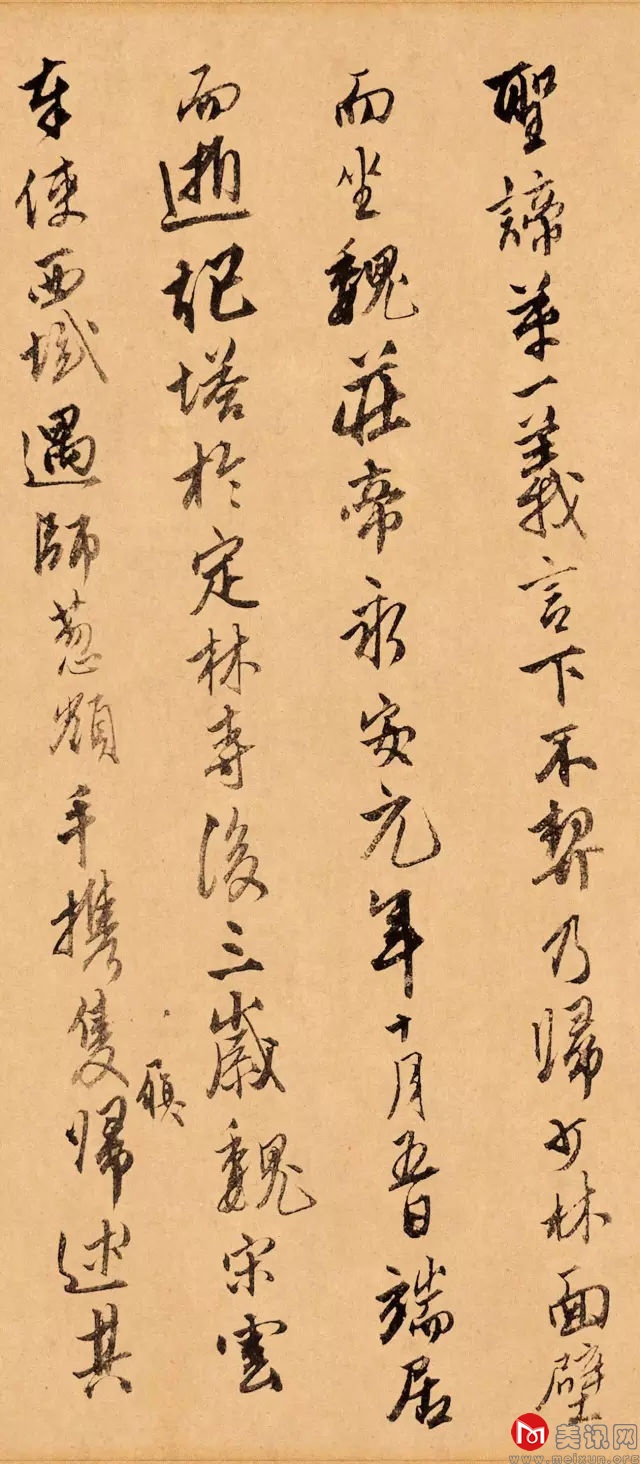 聖諦第一義言下不契乃歸少林面壁
而坐魏莊帝永安元年十月五日端居
而逝記塔於定林寺後三歲魏宋雲
奉使西域遇師葱嶺手攜隻歸述其
履
美讯网
www.meixun.org